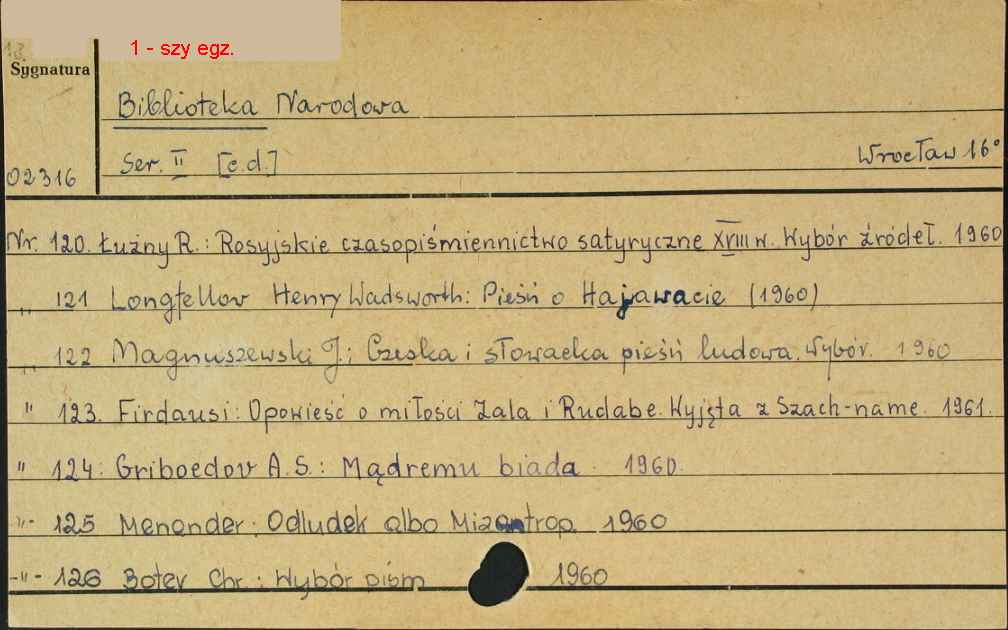 1 - szy egz.
Sygnatura
Biblioteka Narodowa
Ser. II [c.d.] Wrocław 16°
02316
Nr. 120. Łużny R.: Rosyjskie czasopiśmiennictwo satyryczne XVIII w. Wybór źródeł. 1960
„ 121 Longfellov Henry Wadsworth: Pieśń o Hajawacie (1960)
„ 122 Magnuszewski J.; Czeska i słowacka pieśń ludowa. Wybór. 1960
" 123. Firdausi: Opowieść o miłości Zala i Rudabe. Wyjęta z Szach-name. 1961.
" 124: Griboedov A.S.: Mądremu biada. 1960.
-"- 125 Menander: Odludek albo Mizantrop 1960
-"- 126 Botev Chr.: Wybór pism 1960